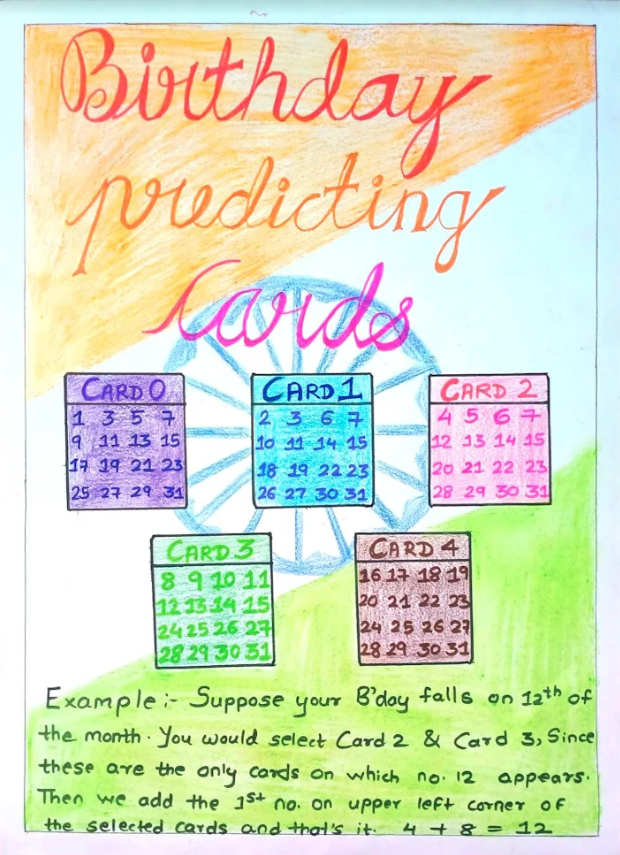 Birthday
predicting
Cards
CARD 0
1 3 5 7
9 11 13 15
17 19 21 23
25 27 29 31
CARD 1
2 3 6 7
10 11 14 15
18 19 22 23
26 27 30 31
CARD 2
4 5 6 7
12 13 14 15
20 21 22 23
28 29 30 31
CARD 3
8 9 10 11
12 13 14 15
24 25 26 27
28 29 30 31
CARD 4
16 17 18 19
20 21 22 23
24 25 26 27
28 29 30 31
Example :- Suppose your B'day falls on 12th of
the month. You would select Card 2 & Card 3, Since
these are the only cards on which no. 12 appears.
Then we add the 1st no. on upper left corner of
the selected cards and that's it. 4 + 8 = 12